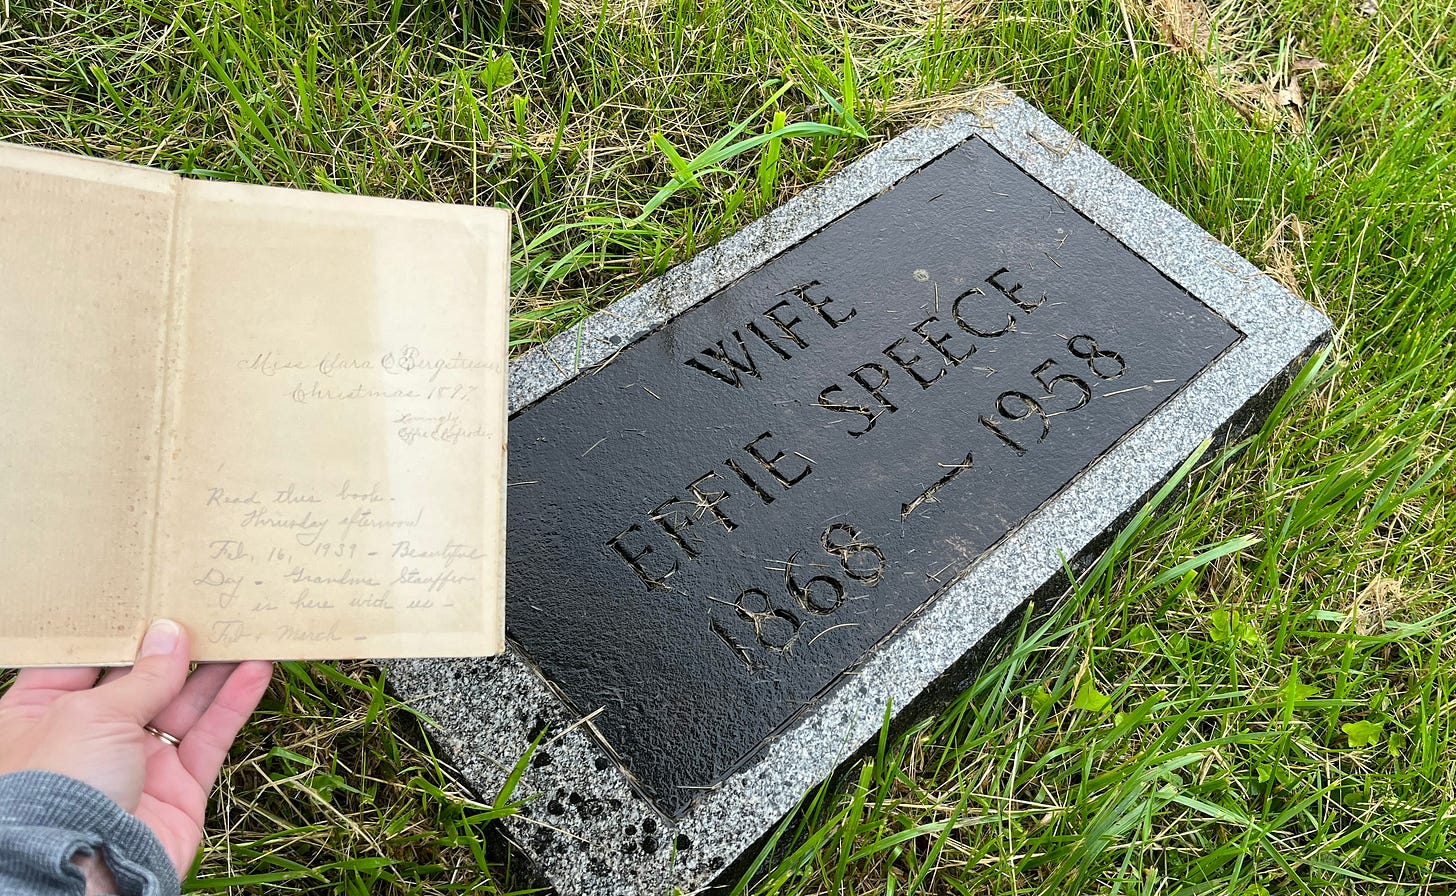 Miss Clara O Bergstresser
Christmas 1897
Lovingly
Effie
Read this book.
Thursday afternoon
Feb, 16, 1939 - Beautiful
Day - Grandma Stauffer
is here with us -
Feb + March -
WIFE
EFFIE SPEECE
1868 — 1958